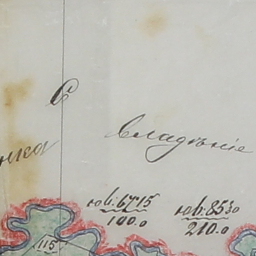 С
нка владѣніе
юв: 6715
100.0
юв: 85 30
210.0
115